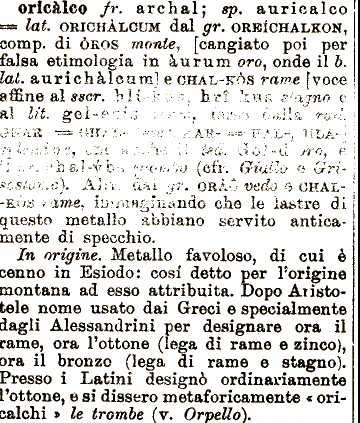 oricàlco fr. archal; sp. auricalco
= lat. ORICHÀLCUM dal gr. OREÍCHALKON,
comp. di ÒROS monte, [cangiato poi per
falsa etimologia in àurum oro, onde il b.
lat. aurichàlcum] e CHAL-KÒS rame [voce
affine al sscr. stagno e
al lit.
GHAR
(cfr. Giallo e Gri-
dal gr. ORÁO vedo e CHAL-
KÒS rame, immaginando che le lastre di
questo metallo abbiano servito antica-
mente di specchio.
In origine. Metallo favoloso, di cui è
cenno in Esiodo: cosí detto per l'origine
montana ad esso attribuita. Dopo Aristo-
tele nome usato dai Greci e specialmente
dagli Alessandrini per designare ora il
rame, ora l'ottone (lega di rame e zinco),
ora il bronzo (lega di rame e stagno).
Presso i Latini designò ordinariamente
l'ottone, e si dissero metaforicamente « ori-
calchi » le trombe (v. Orpello).